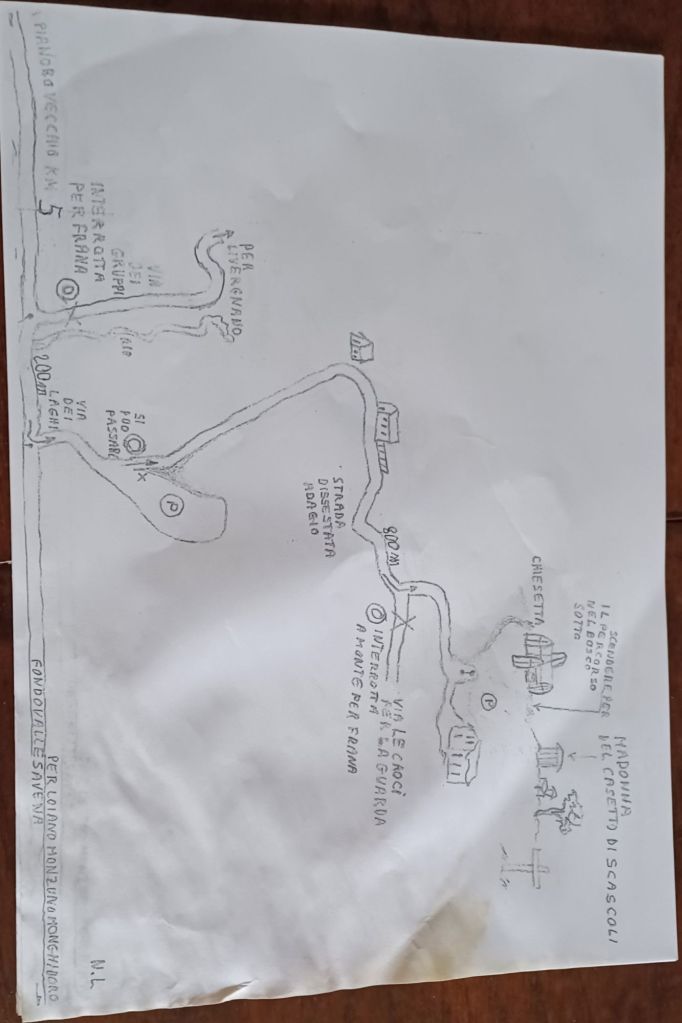 MADONNA
DEL CASETTO DI SCASCOLI
SCENDERE PER
IL PERCORSO
NEL BOSCO
SOTTO
CHIESETTA
P
PER
LIVERGNANO
VIA
DEI
GRUPPI
INTERROTTA
PER FRANA
RIO
STRADA
DISSESTATA
ADAGIO
800 M
VIA LE CROCI
PER LA GUARDA
INTERROTTA
A MONTE PER FRANA
SI
PUO
PASSARE
P
VIA
DEI
LAGHI
200 M
PIANORO VECCHIO KM 5
PER LOIANO MONZUNO MONGHIDORO
FONDOVALLE SAVENA
N.L